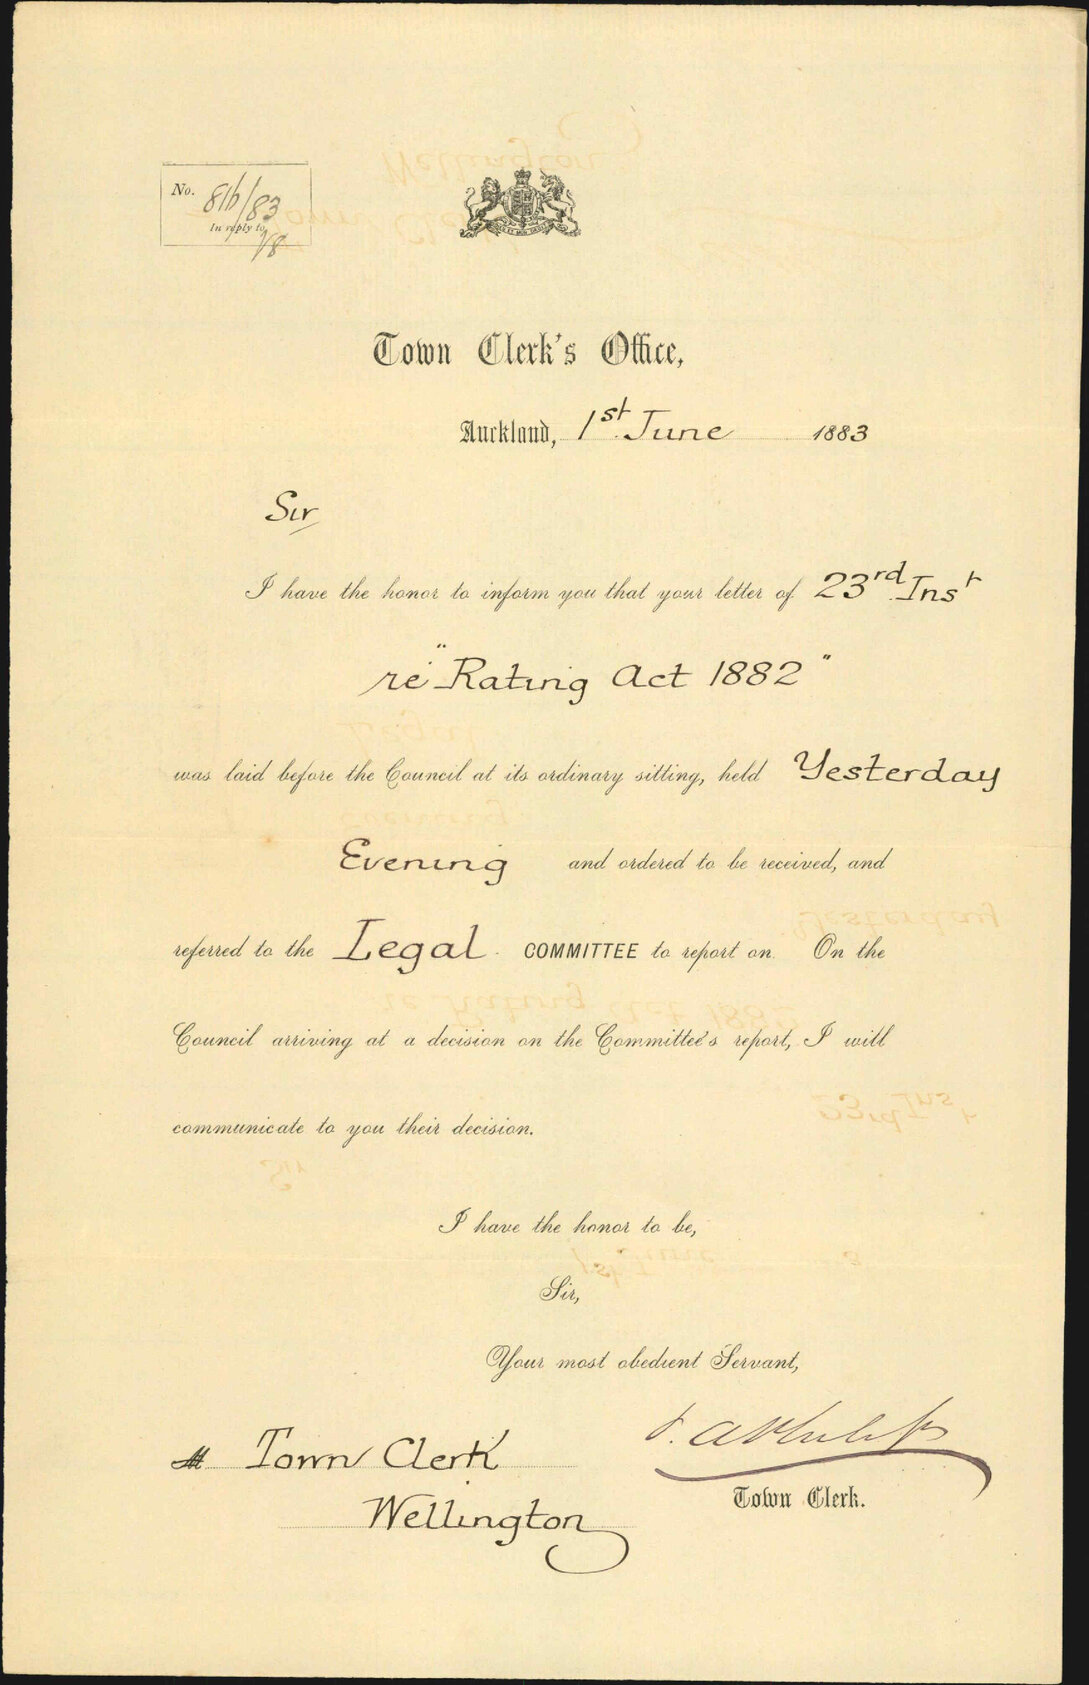 No. 816/83
In reply to
Town Clerk's Office,
Auckland, 1st June 1883
Sir
I have the honor to inform you that your letter of 23rd Inst
re "Rating Act 1882"
was laid before the Council at its ordinary sitting, held Yesterday
Evening and ordered to be received, and
referred to the Legal COMMITTEE to report on. On the
Council arriving at a decision on the Committee's report, I will
communicate to you their decision.
I have the honor to be,
Sir,
Your most obedient Servant,
Town Clerk
Town Clerk.
Wellington